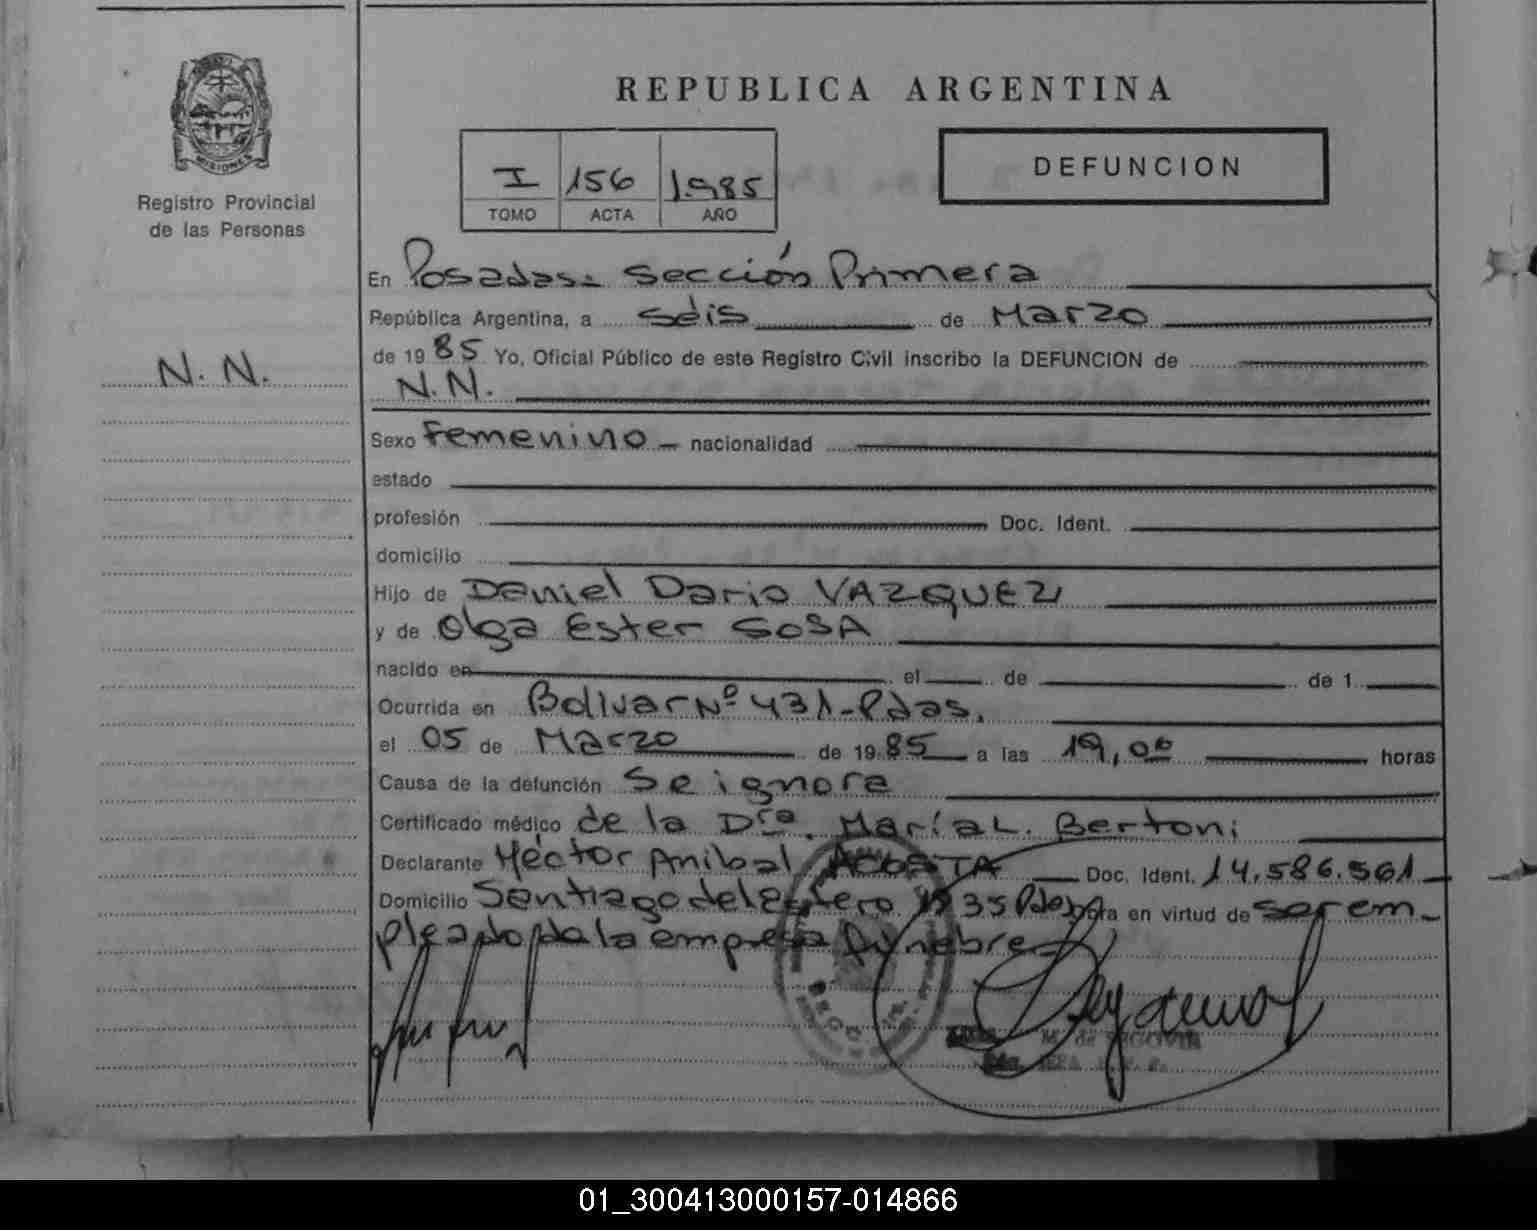 REPUBLICA ARGENTINA
DEFUNCION
I 156 1.985
TOMO ACTA AÑO
MISIONES
Registro Provincial
de las Personas
N. N.
En Posadas.- Sección Primera
República Argentina, a séis de Marzo
de 1985 Yo, Oficial Público de este Registro Civil inscribo la DEFUNCION de
N.N.
Sexo Femenino - nacionalidad
estado
profesión Doc. Ident.
domicilio
Hijo de Daniel Dario VAZQUEZ
y de Olga Ester SOSA
nacido en el de de 1
Ocurrida en Bolivar Nº 431-Pdas.
el 05 de Marzo de 1985 a las 19,00 horas
Causa de la defunción Se ignora
Certificado médico de la Dra. María L. Bertoni
Declarante Héctor Anibal ACOSTA Doc. Ident. 14.586.561
Domicilio Santiago del Estero 35 Pdas en virtud de ser em-
pleado de la empresa fúnebre
M. de SEGOVIA
01_300413000157-014866